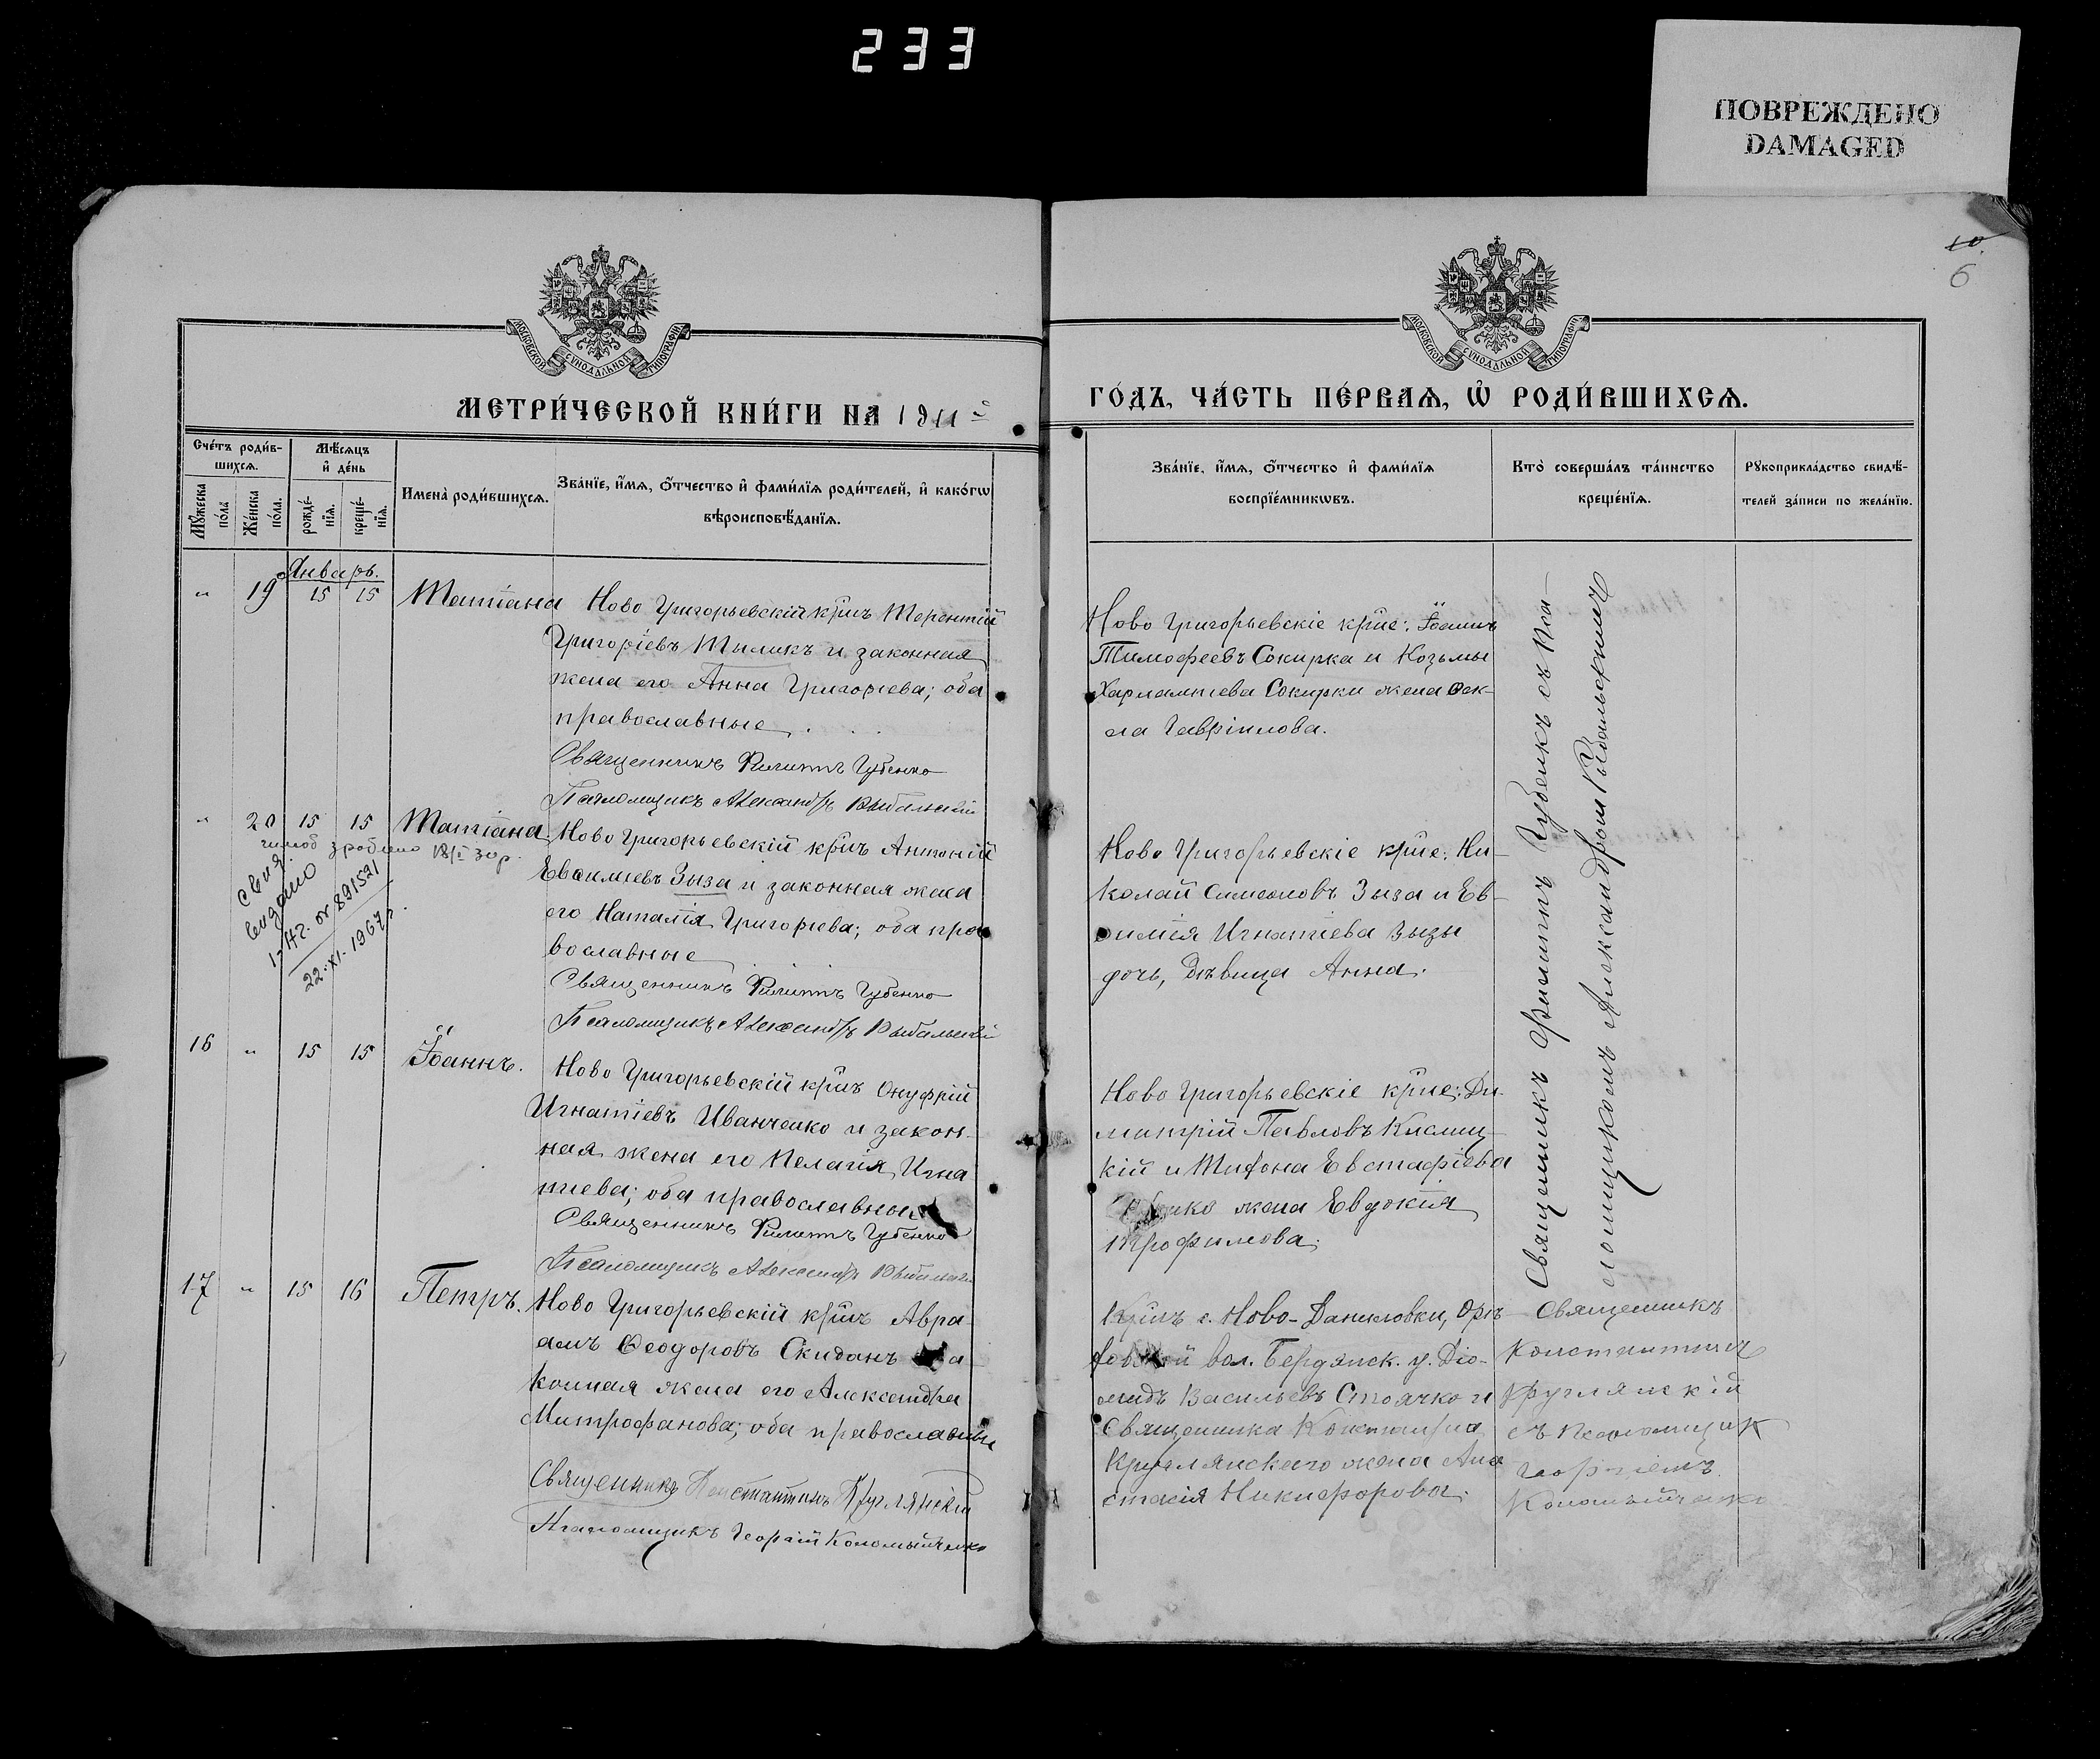 233
ПОВРЕЖДЕНО
DAMAGED
10
6
МОСКОВСКОЙ СѴНОДАЛЬНОЙ ТИПОГРАФІИ
МОСКОВСКОЙ СѴНОДАЛЬНОЙ ТИПОГРАФІИ
МЕТРИ́ЧЕСКОЙ КНИ́ГИ НА 1911
ГО́ДЪ, ЧА́СТЬ ПЕ́РВАѦ, Ѡ҆ РОДИ́ВШИХСѦ.
Сче́тъ роди́в-
шихсѧ.
Мѣ́сѧцъ
и҆ де́нь
Мꙋ́жеска
по́ла
Же́нска
по́ла.
рожде́-
нїѧ.
креще́-
нїѧ.
Имена̀ роди́вшихсѧ.
Зва́нїе, и҆́мѧ, ѻ҆́тчество и҆ фами́лїѧ роди́телей, и҆ како́гѡ
вѣроисповѣ́данїѧ.
Зва́нїе, и҆́мѧ, ѻ҆́тчество и҆ фами́лїѧ
воспрїе́мникѡвъ.
Кто̀ соверша́лъ та́инство
креще́нїѧ.
Рꙋкоприкла́дство свидѣ́-
телей за́писи по жела́нїю.
Январь.
" 19 15 15 Татіана
Ново Григорьевскій кр͠инъ Терентій
Григоріевъ Тыликъ и законная
жена его Анна Григорiева; оба
православные.
Священникъ Филиппъ Губенко
Псаломщикъ Александръ Рыбальскій
Ново Григорьевскіе кр͠не: Іоаннъ
Тимофеевъ Сокирка и Козьмы
Харлампіева Сокирки жена Фек-
ла Гавріилова.
" 20 15 15 Татіана.
зроблено
видано
891521
22.XI.1967р.
Ново Григорьевскій кр͠инъ Антоній
Евсиміевъ Зыза и законная жена
его Наталія Григорiева; оба пра
вославные
Священникъ Филиппъ Губенко
Псаломщикъ Александръ Рыбальскій
Ново Григорьевскіе кр͠не: Ни-
колай Симеоновъ Зыза и Ев-
фимія Игнатіева Зызы
дочь, дѣвица Анна.
16 " 15 15 Іоаннъ.
Ново Григорьевскій кр͠инъ Онуфрій
Игнатіевъ Иванченко и закон-
ная жена его Пелагія Игна
тіева; оба православные
Священникъ Филиппъ Губенко
Псаломщикъ Александръ Рыбальскій
Ново Григорьевскіе кр͠не: Ди-
митрій Павловъ Кислиц-
кій и Тифона Евстафіева
жена Евдокія
Трофимова.
Священникъ Филиппъ Губенко съ Пса-
ломщикомъ Александромъ Рыбальскимъ
17 " 15 16 Петръ.
Ново Григорьевскій кр͠инъ Авра
амъ Феодоровъ Скиданъ и за
конная жена его Александра
Митрофанова; оба православные
Священникъ Константинъ Круглянскій
Псаломщикъ Георгій Коломыйченко
Кр͠инъ с. Ново-Даниловки, Орѣ-
ховской вол. Бердянск. у. Діо-
мидъ Васильевъ Стоячко и
Священника Константина
Круглянскаго жена Ана
стасія Никифорова.
Священникъ
Константинъ
Круглянскій
съ Псаломщик
Георгіемъ
Коломыйченко